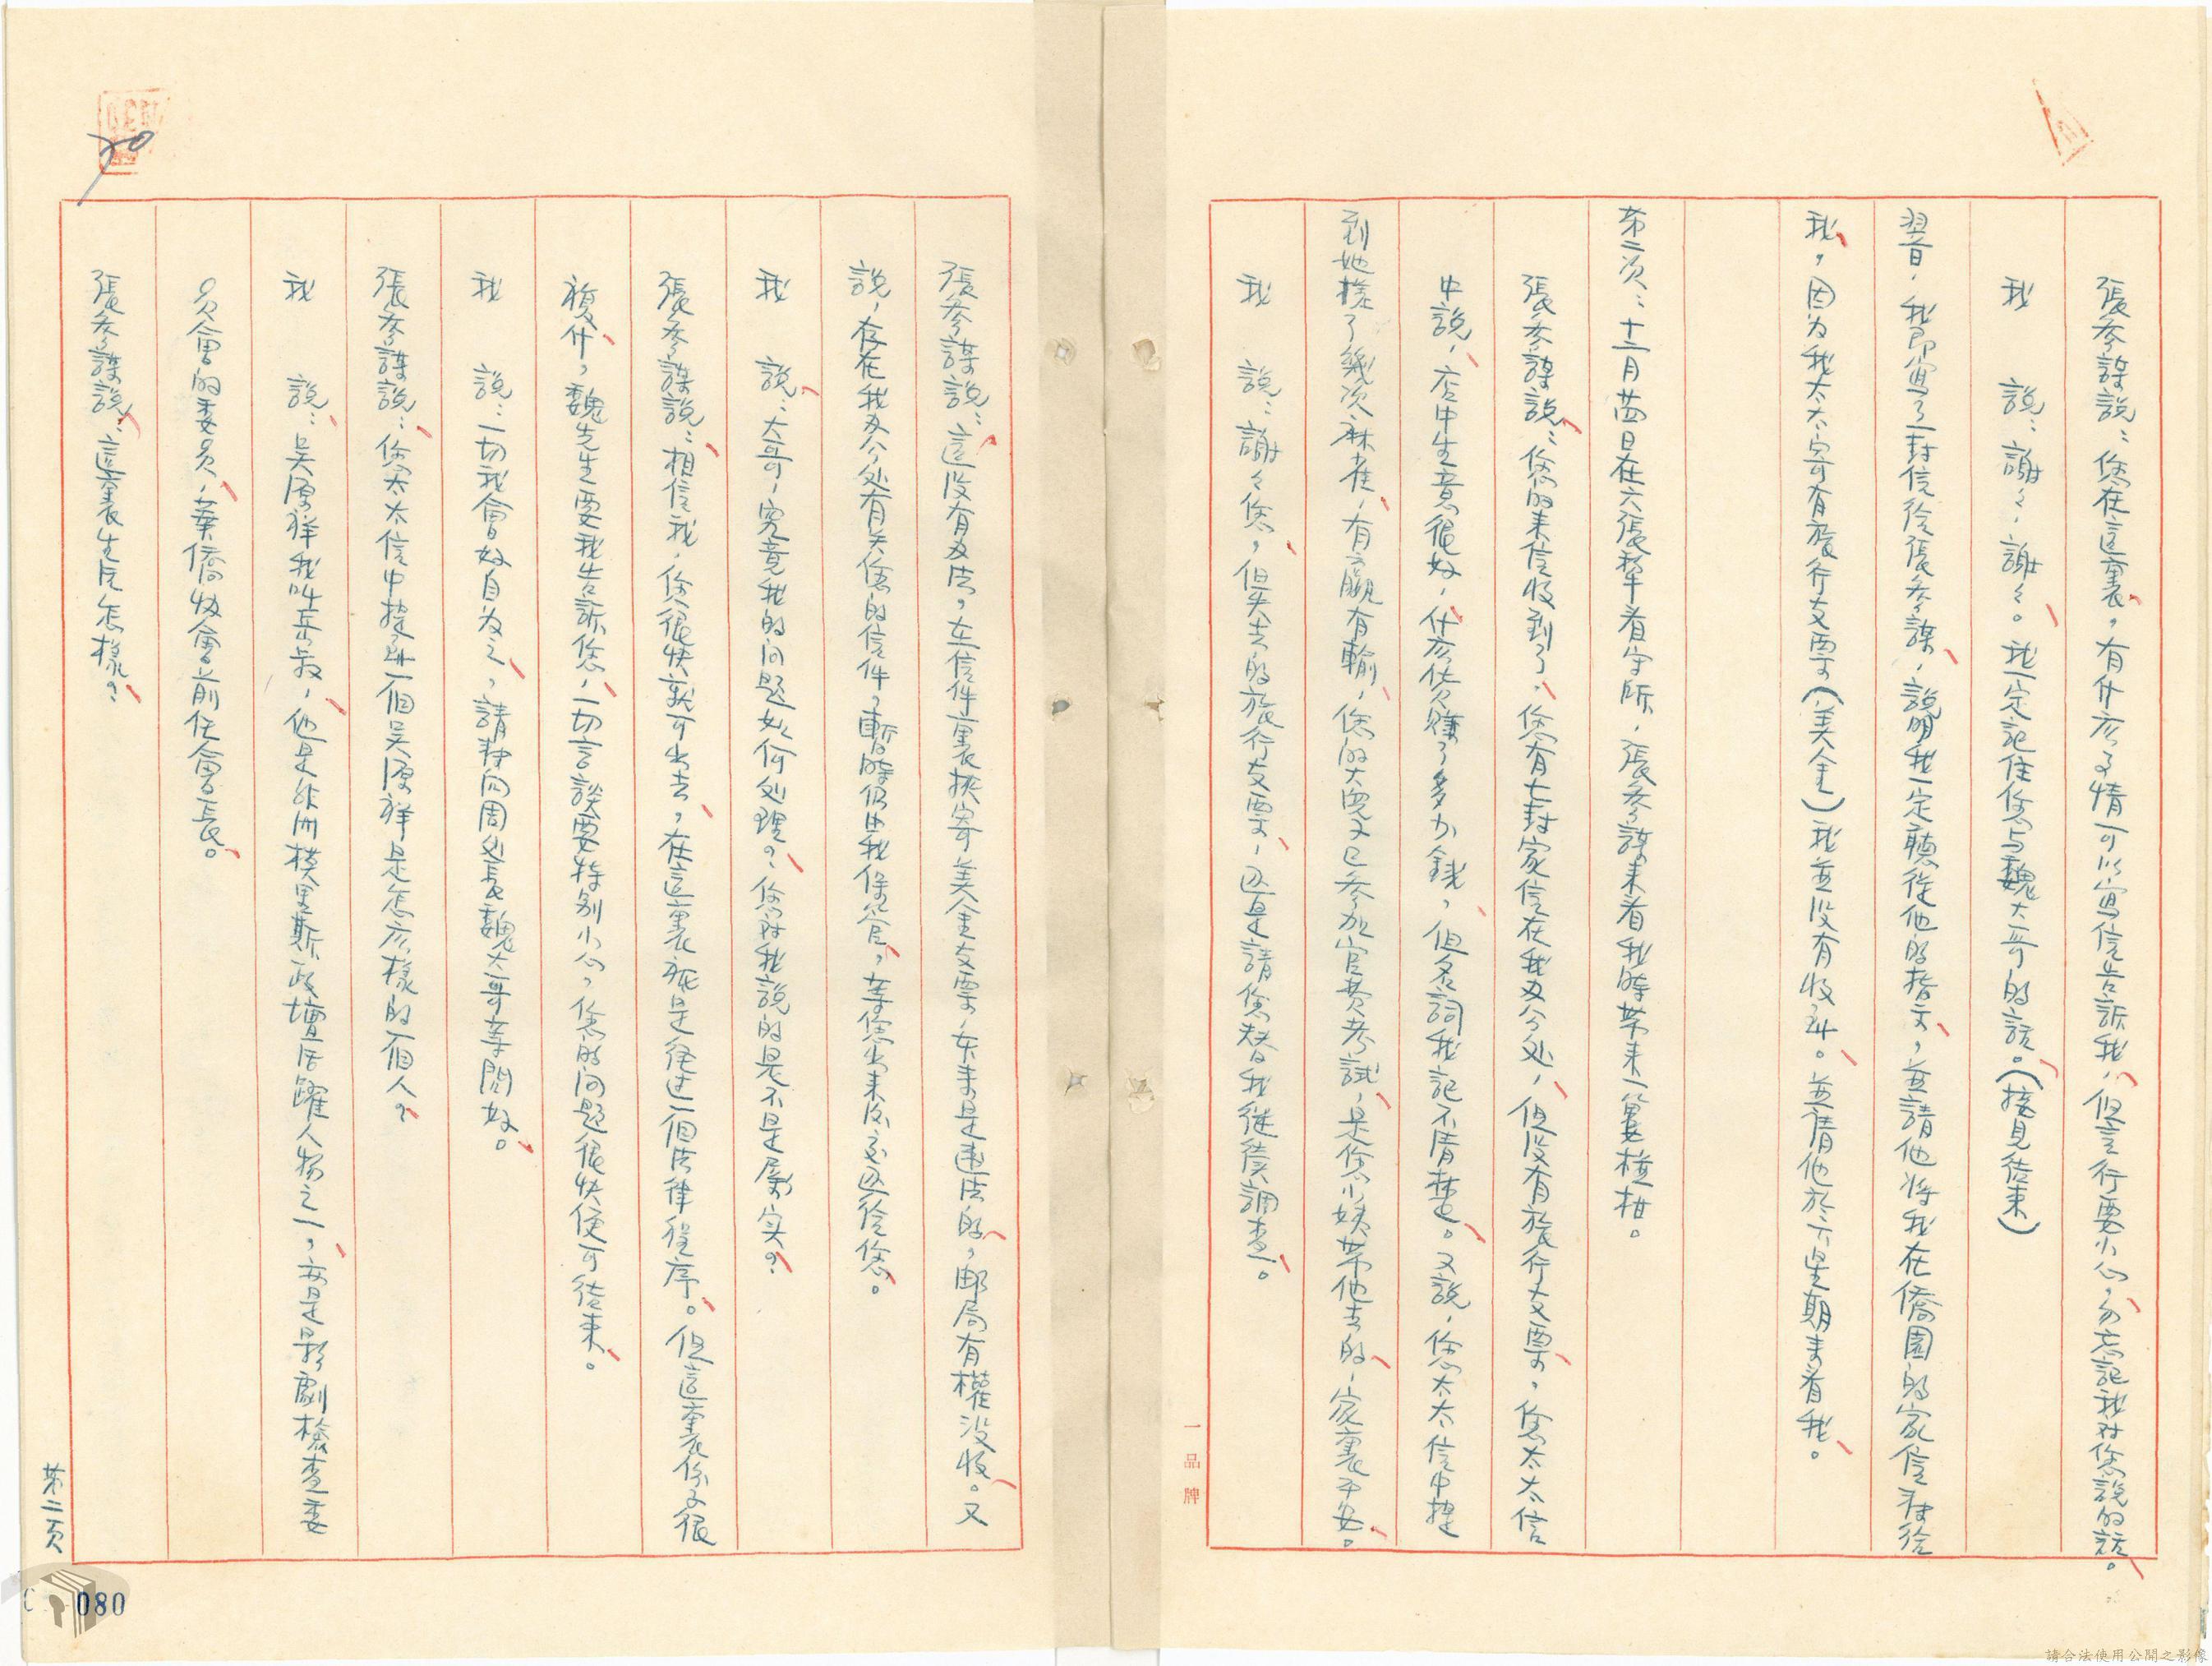 張參謀說：您在這裏，有什麽事情可以寫信告訴我，但言行要小心，勿忘記我对您說的話。
我　說：謝々，謝々。我一定記住您与魏大哥的話。（接見结束）
翌日，我即寫了一封信给張參謀，說明我一定聽從他的指示，並請他将我在僑園的家信转给
我，因为我太太寄有旅行支票（美金）我並没有收到。並请他於下星期来看我。
第二次：十二月廿四日在六張犂看守所，張參謀来看我時带来一簍椪柑。
張參謀說：您的来信收到了，您有七封家信在我办公处，但没有旅行支票，您太太信
中說，店中生意很好，什麽货賺了多少錢，但名詞我記不清楚。又說，您太太信中提
到她搓了幾次麻雀，有贏有輸，您的大兒子已參加官费考試，是您小姨带他去的，家裏平安。
我　說：謝々您，但失去的旅行支票，还是請您替我继续調查。
一品牌
張參謀說：這没有办法，在信件裏挾寄美金支票，本来是違法的，郵局有權没收。又
說，存在我办公处有关您的信件，暫時仍由我保管，等您出来后交还给您。
我　說：大哥，究竟我的问题如何处理？您对我說的是不是属实？
張參謀說：相信我，您很快就可出去，在這裏祇是经过一個法律程序。但這裏份子很
複什，魏先生要我告訴您，一切言談要特别小心，您的问题很快便可结束。
我　說：一切我會好自为之，請转向周处長魏大哥等問好。
張參謀說：您太太信中提到一個吴源祥是怎麽樣的一個人？
我　說：吴源祥我叫岳叔，他是非洲模里斯政壇活躍人物之一，亦是影劇檢查委
员會的委员，華僑收會前任會長。
張參謀說：這裏生活怎樣？
第二页
080
請合法使用公開之影像